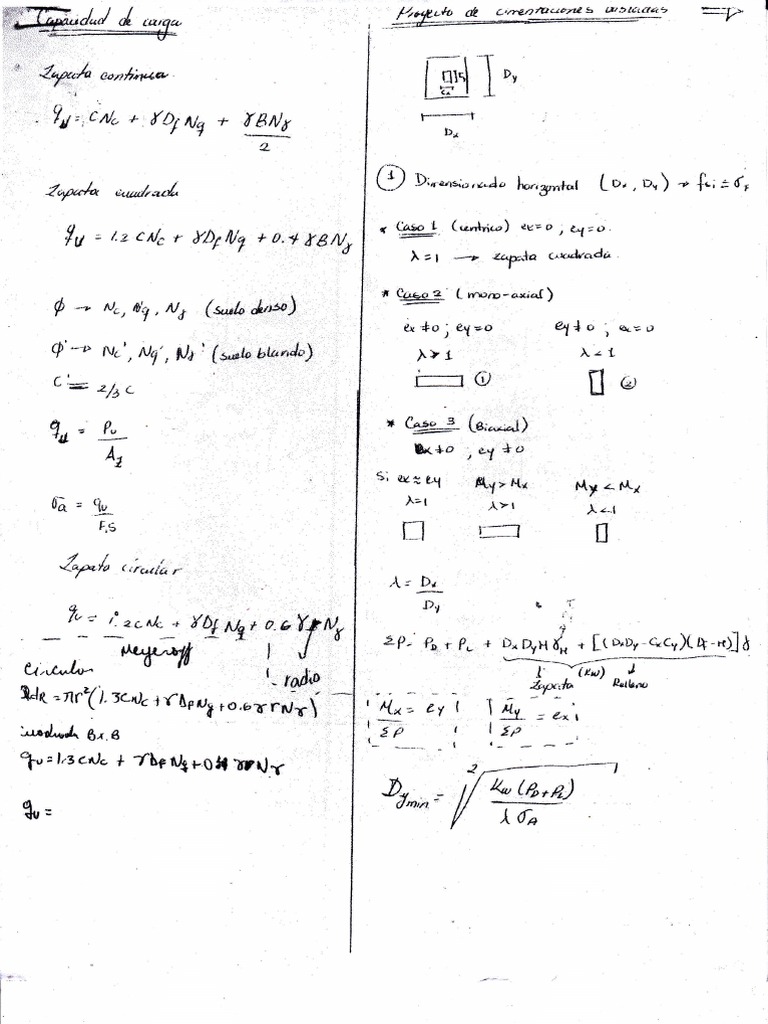 Capacidad de carga
Zapata continua
qu = CNc + γDfNq + γBNγ
2
Zapata cuadrada
qu = 1.2 CNc + γDfNq + 0.4 γBNγ
ϕ → Nc, Nq, Nγ (suelo denso)
ϕ' → Nc', Nq', Nγ' (suelo blando)
C' = 2/3 C
qu = Pu
Az
σa = qu
F.S
Zapata circular
qu = 1.2CNc + γDfNq + 0.6 γrNγ
Meyeroff
radio
Circulo
= πr²(1.3CNc + γDfNq + 0.6γrNγ)
cuadrada BxB
qu = 1.3CNc + γDfNq + 0.4 γ Nγ
qu =
Proyecto de cimentaciones aisladas ⇒
Dy
Cx
Dx
① Dimensionado horizontal (Dx, Dy) → fci ≤ σF
* Caso 1 (centrico) ex=0 ; ey=0.
λ=1 → zapata cuadrada.
* Caso 2 (mono-axial)
ex ≠0 ; ey=0 ey≠0 ; ex=0
λ > 1 λ < 1
① ②
* Caso 3 (Biaxial)
ex≠0 , ey≠0
Si ex ≈ ey My>Mx My < Mx
λ=1 λ>1 λ<1
λ = Dx
Dy
ΣP = PD + PL + DxDyHγH + [(DxDy - CxCy)(Df-H)]γ
Zapata (Kw) Relleno
Mx = ey My = ex
ΣP ΣP
Dymin = ²√ Kw (PD+PL)
λσA